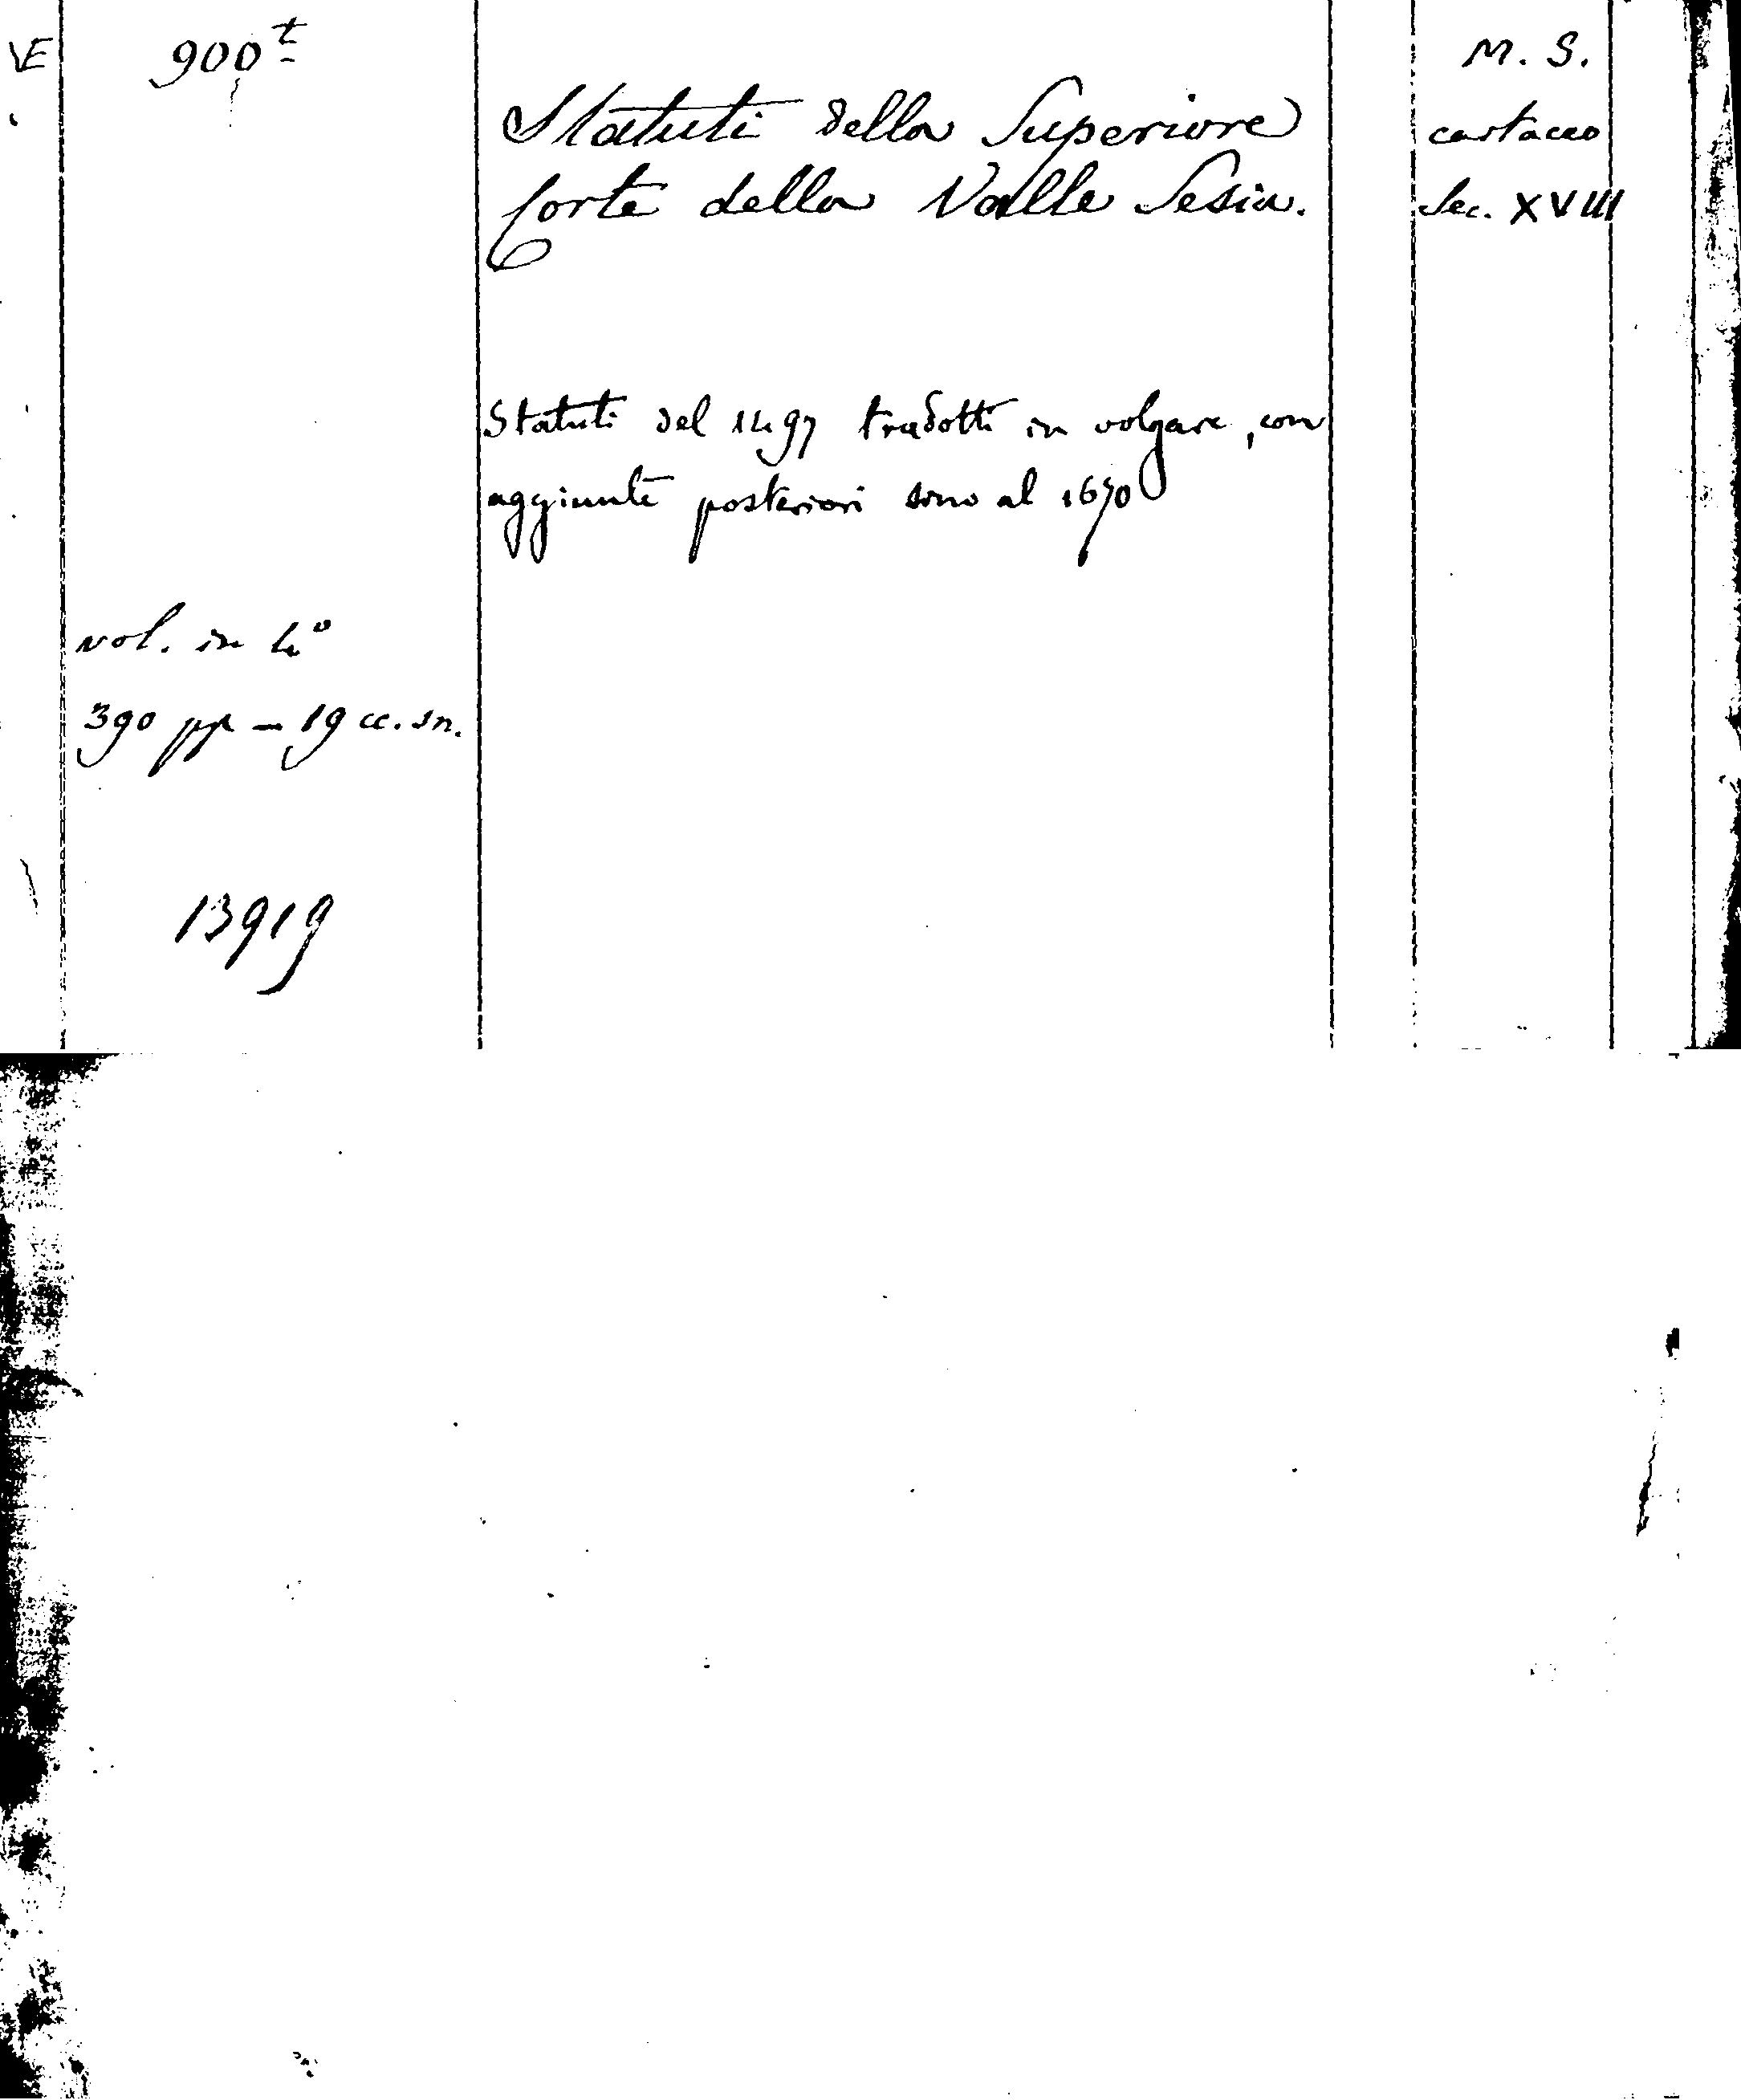 VE 900 t M. S.
Statuti della Superiore cartaceo
Corte della Valle Sesia. Sec. XVIII
Statuti del 1497 tradotti in volgare, con
aggiunte posteriori sino al 1670
vol. in 4º
390 pp — 19 cc. sn.
13919